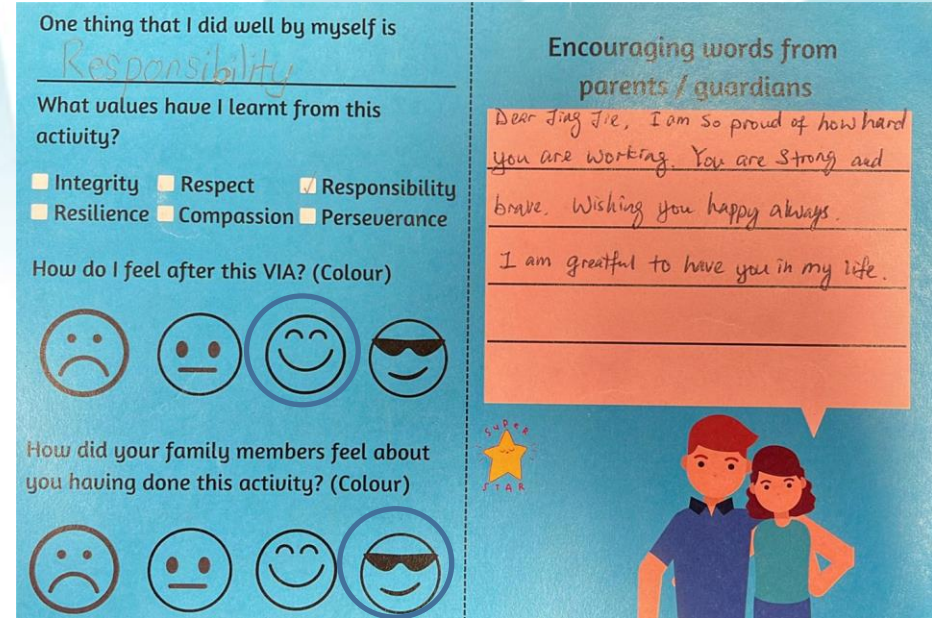 One thing that I did well by myself is
Responsibility
What values have I learnt from this
activity?
Integrity Respect Responsibility
Resilience Compassion Perseverance
How do I feel after this VIA? (Colour)
How did your family members feel about
you having done this activity? (Colour)
Encouraging words from
parents / guardians
Dear Jing Jie, I am so proud of how hard
you are working. You are strong and
brave. Wishing you happy always.
I am greatful to have you in my life.
SUPER
STAR